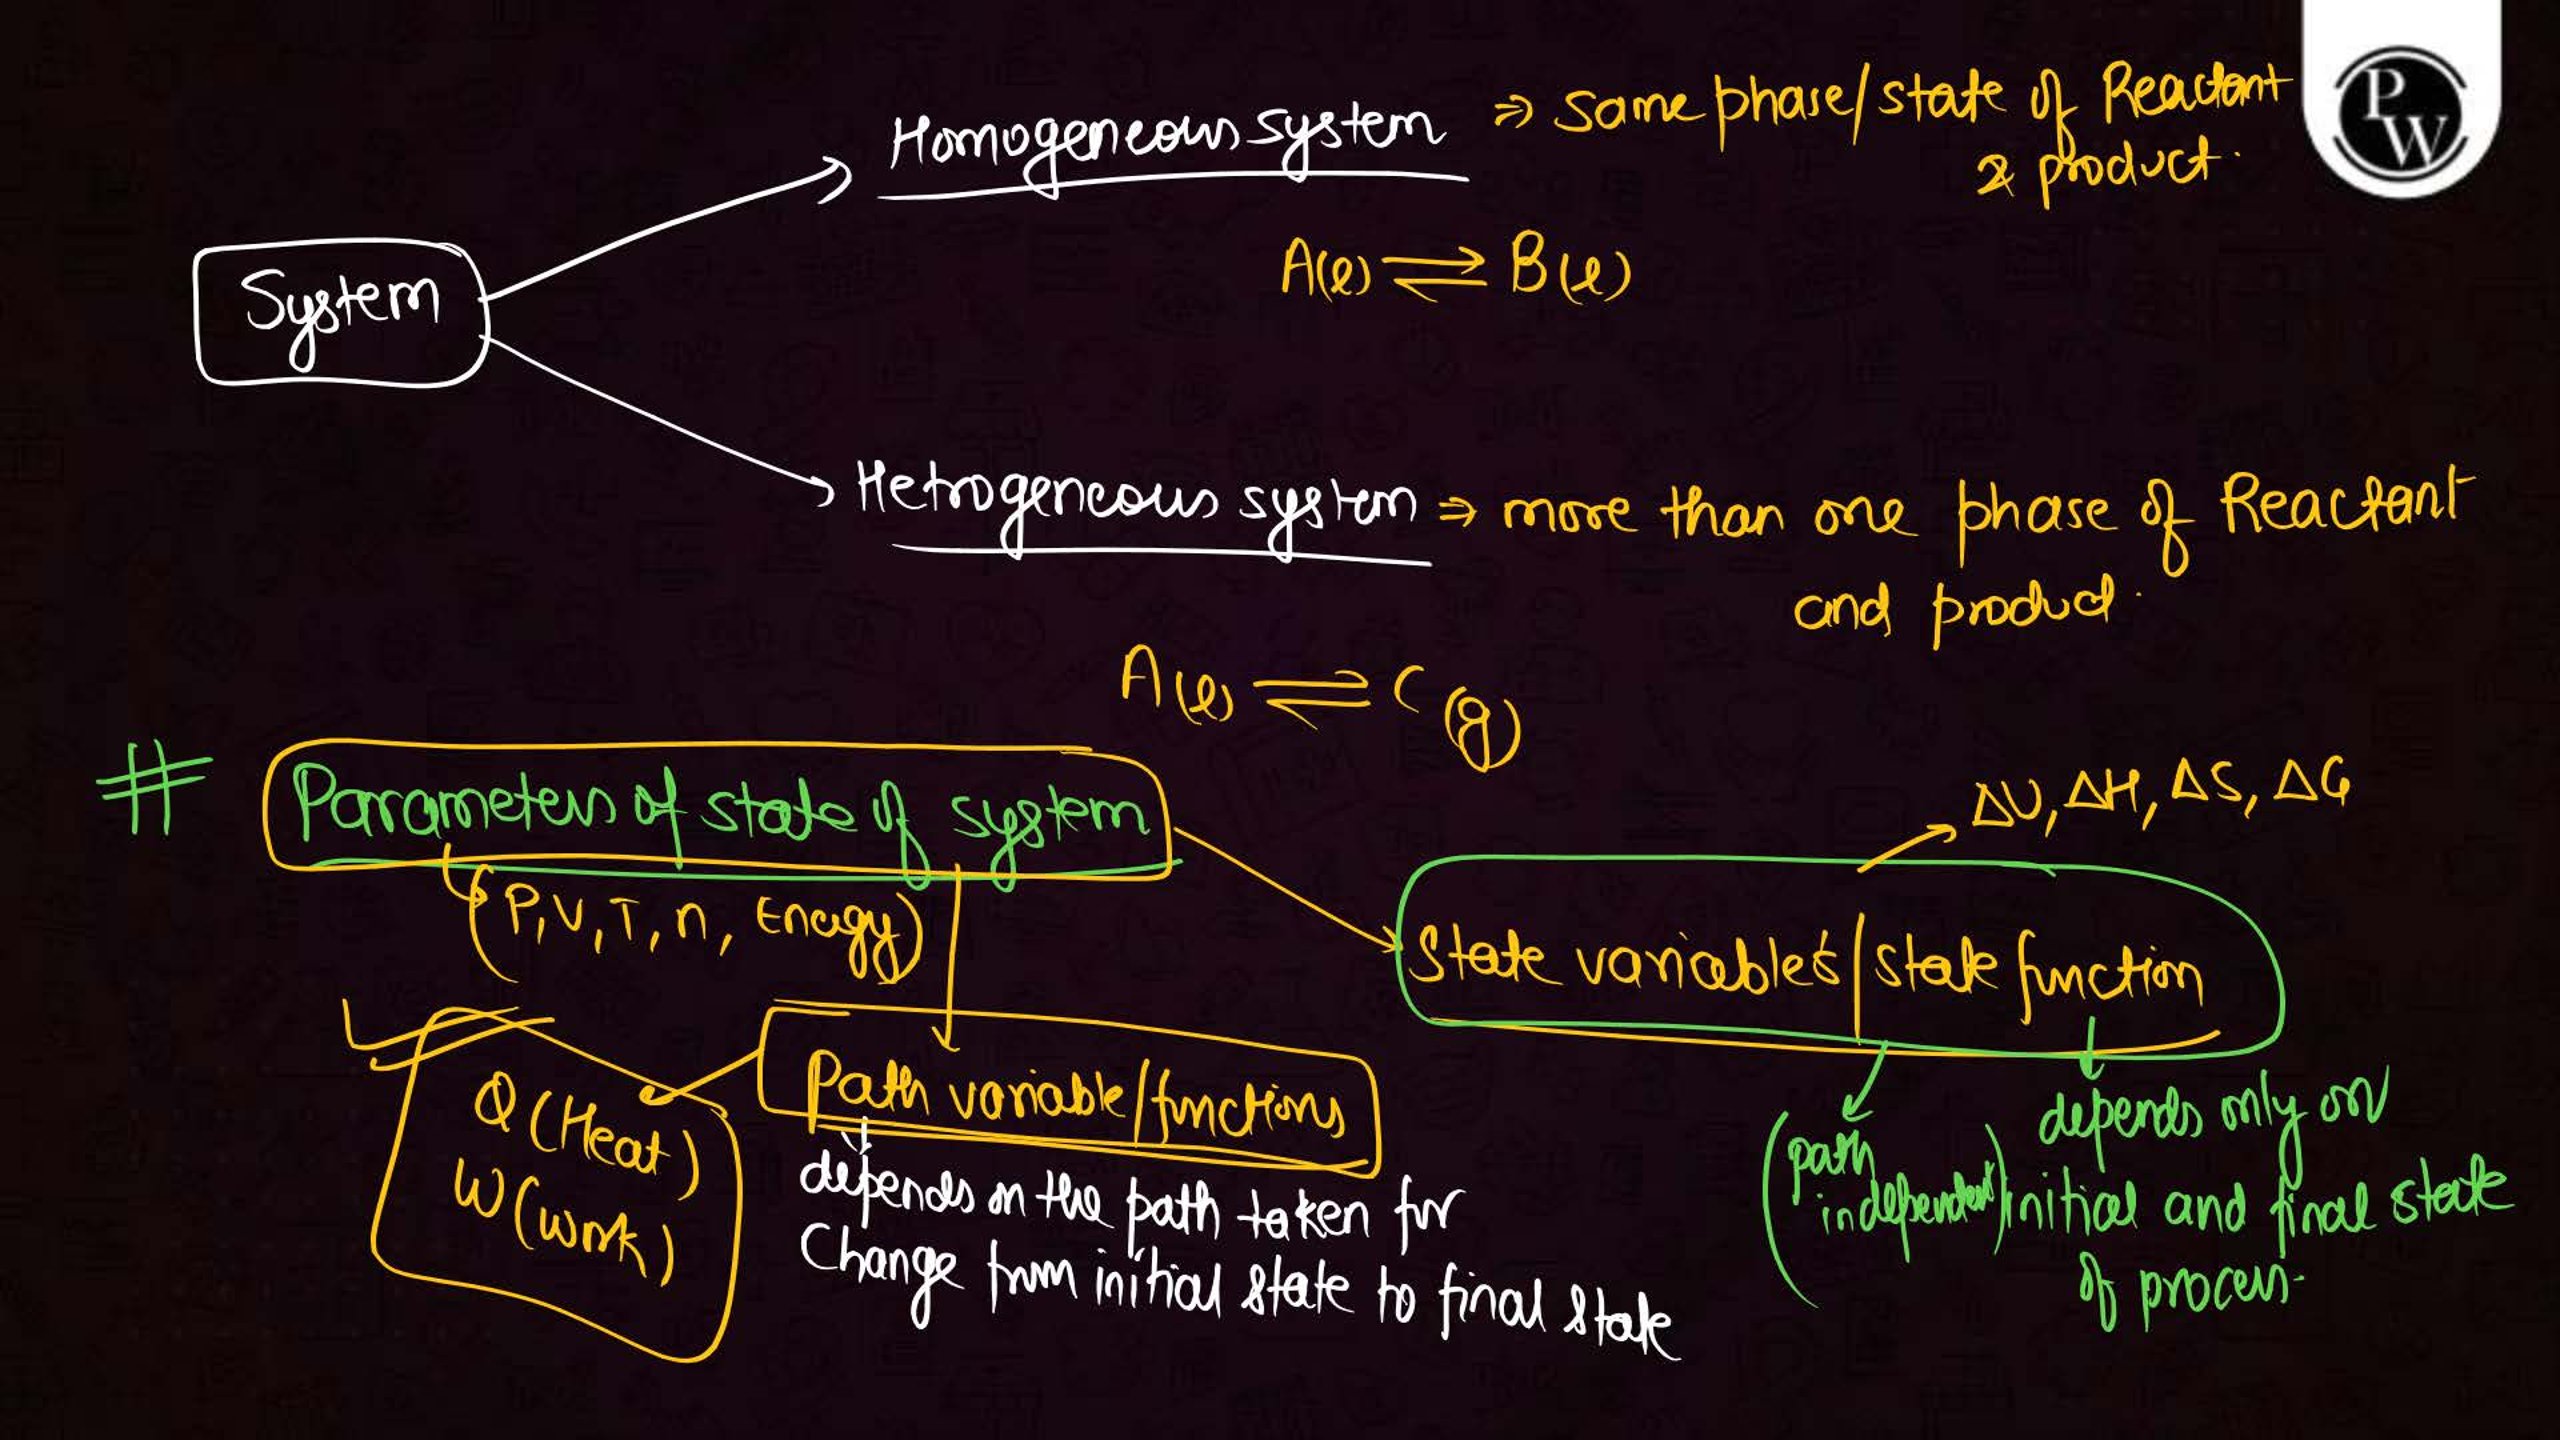 Homogeneous system ⇒ Same phase/state of Reactant
& product.
PW
A(l) ⇌ B(l)
System
Hetrogeneous system ⇒ more than one phase of Reactant
and product.
A(l) ⇌ C(g)
# Parameters of state of system
(P, V, T, n, Energy)
ΔU, ΔH, ΔS, ΔG
State variables/state function
Path variable/functions
Q (Heat)
W (work)
depends on the path taken for
Change from initial state to final state
(path
independent)
depends only on
initial and final state
of process.